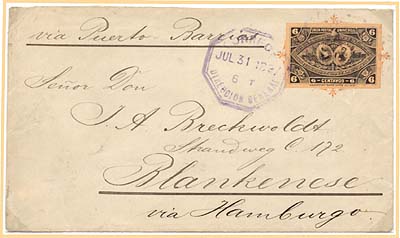 via Puerto Barrios
JUL 31
6 T
DIRECCION GENERAL
UNION POSTAL UNIVERSAL
6 6
6 CENTAVOS 6
Señor Don
J. A Breckwoldt
Strandweg C. 172
Blankenese
via Hamburgo.